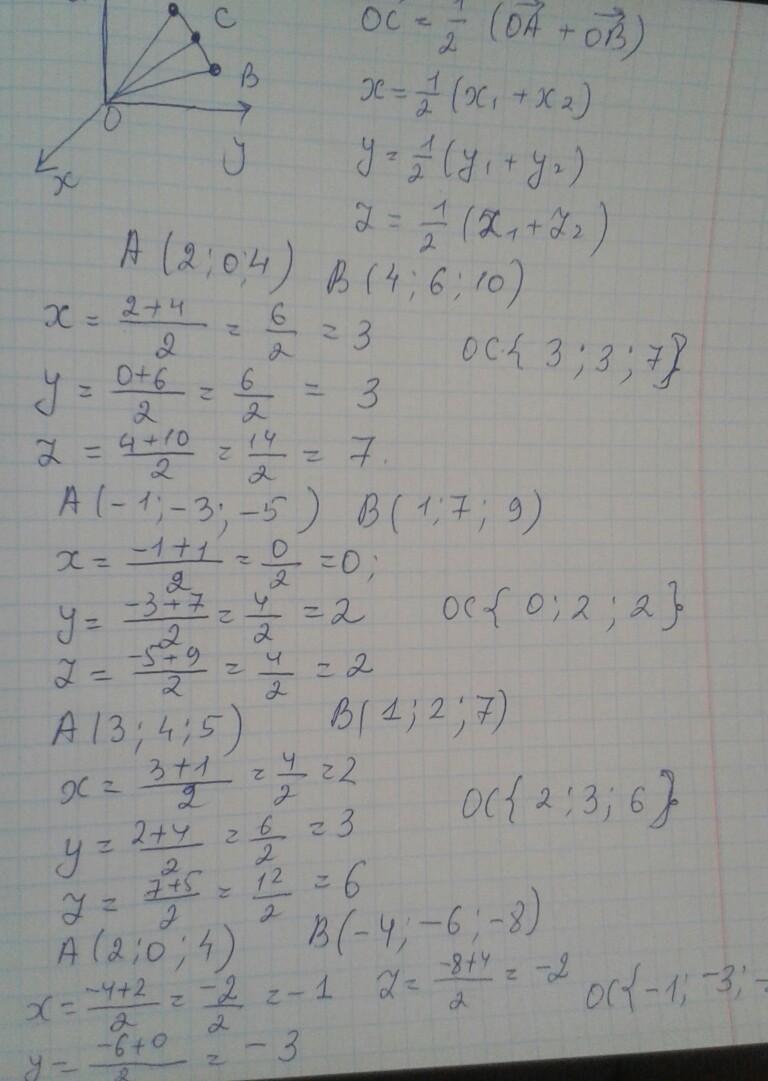 C
B
O
y
x
OC = 1/2 (OA + OB)
x = 1/2 (x₁ + x₂)
y = 1/2 (y₁ + y₂)
z = 1/2 (z₁ + z₂)
A (2; 0; 4) B (4; 6; 10)
x = 2+4/2 = 6/2 = 3
OC{ 3; 3; 7}
y = 0+6/2 = 6/2 = 3
z = 4+10/2 = 14/2 = 7.
A (-1; -3; -5) B (1; 7; 9)
x = -1+1/2 = 0/2 = 0;
y = -3+7/2 = 4/2 = 2 OC{ 0; 2; 2}
z = -5+9/2 = 4/2 = 2
A (3; 4; 5) B (1; 2; 7)
x = 3+1/2 = 4/2 = 2
OC{ 2; 3; 6}
y = 2+4/2 = 6/2 = 3
z = 7+5/2 = 12/2 = 6
A (2; 0; 4) B (-4; -6; -8)
x = -4+2/2 = -2/2 = -1 z = -8+4/2 = -2 OC{-1; -3; -
y = -6+0/2 = -3